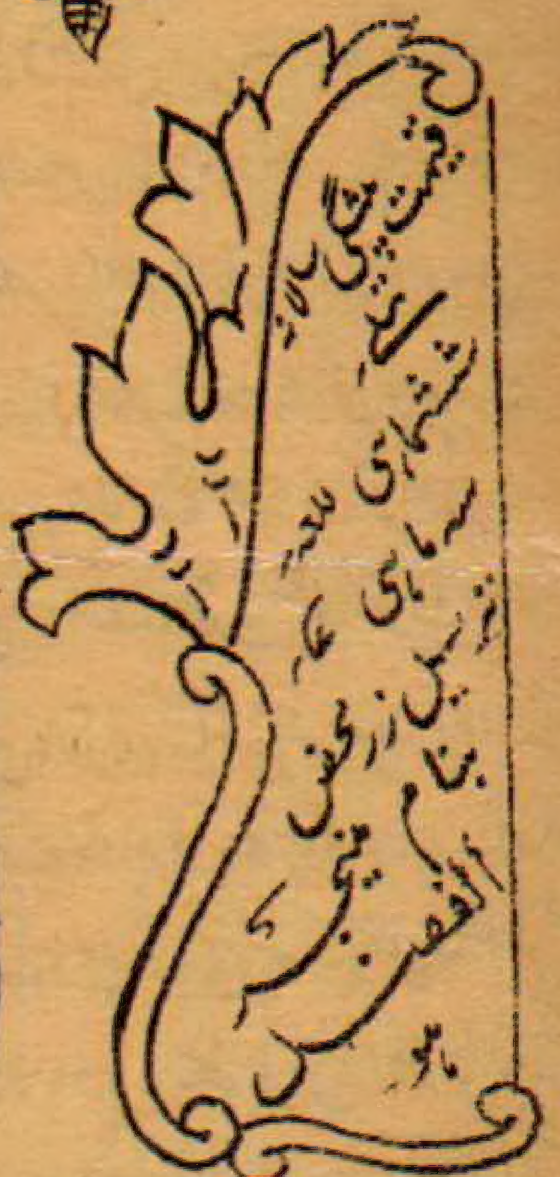 قیمت پیشگی سالانہ
ششماہی للعہ
سہ ماہی عہ
ترسیل زر محض
بنام منیجر
الفضل
ہو